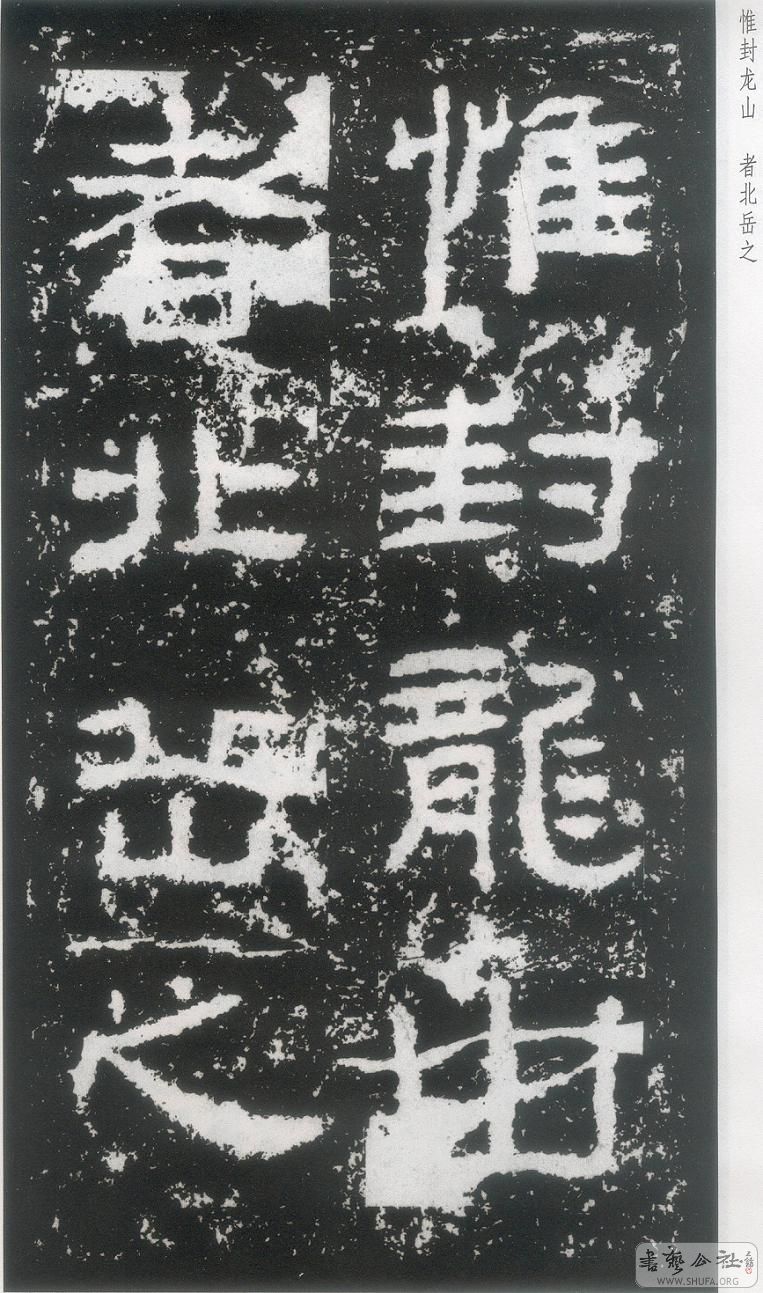 惟封龙山 者北岳之
惟封龍山
者北岳之
書藝公社
WWW.SHUFA.ORG